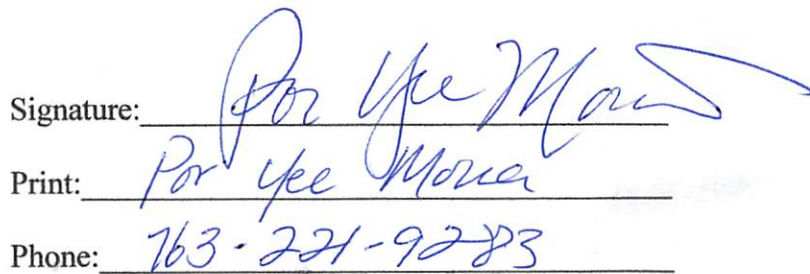 Signature: Por Yee Moua
Print: Por Yee Moua
Phone: 763-221-9283